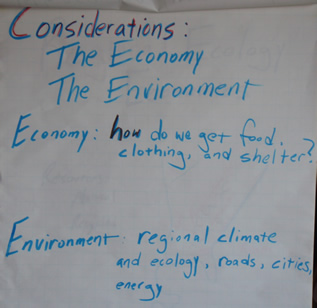 Considerations:
The Economy
The Environment
Economy: how do we get food,
clothing, and shelter?
Environment: regional climate
and ecology, roads, cities,
energy